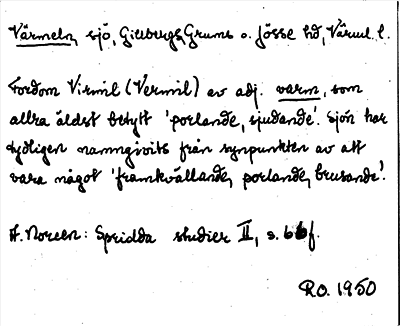 Värmeln, sjö, Gillbergs, Grums o. Jösse hd, Värml. l.
Fordom Virmil (Vermil) av adj. varm, som
allra äldst betytt 'porlande, sjudande'. Sjön har
tydligen namngivits från synpunkten av att
vara något 'framkvällande, porlande, brusande'.
A. Noreen: Spridda studier II, s. 66f.
R.O. 1950